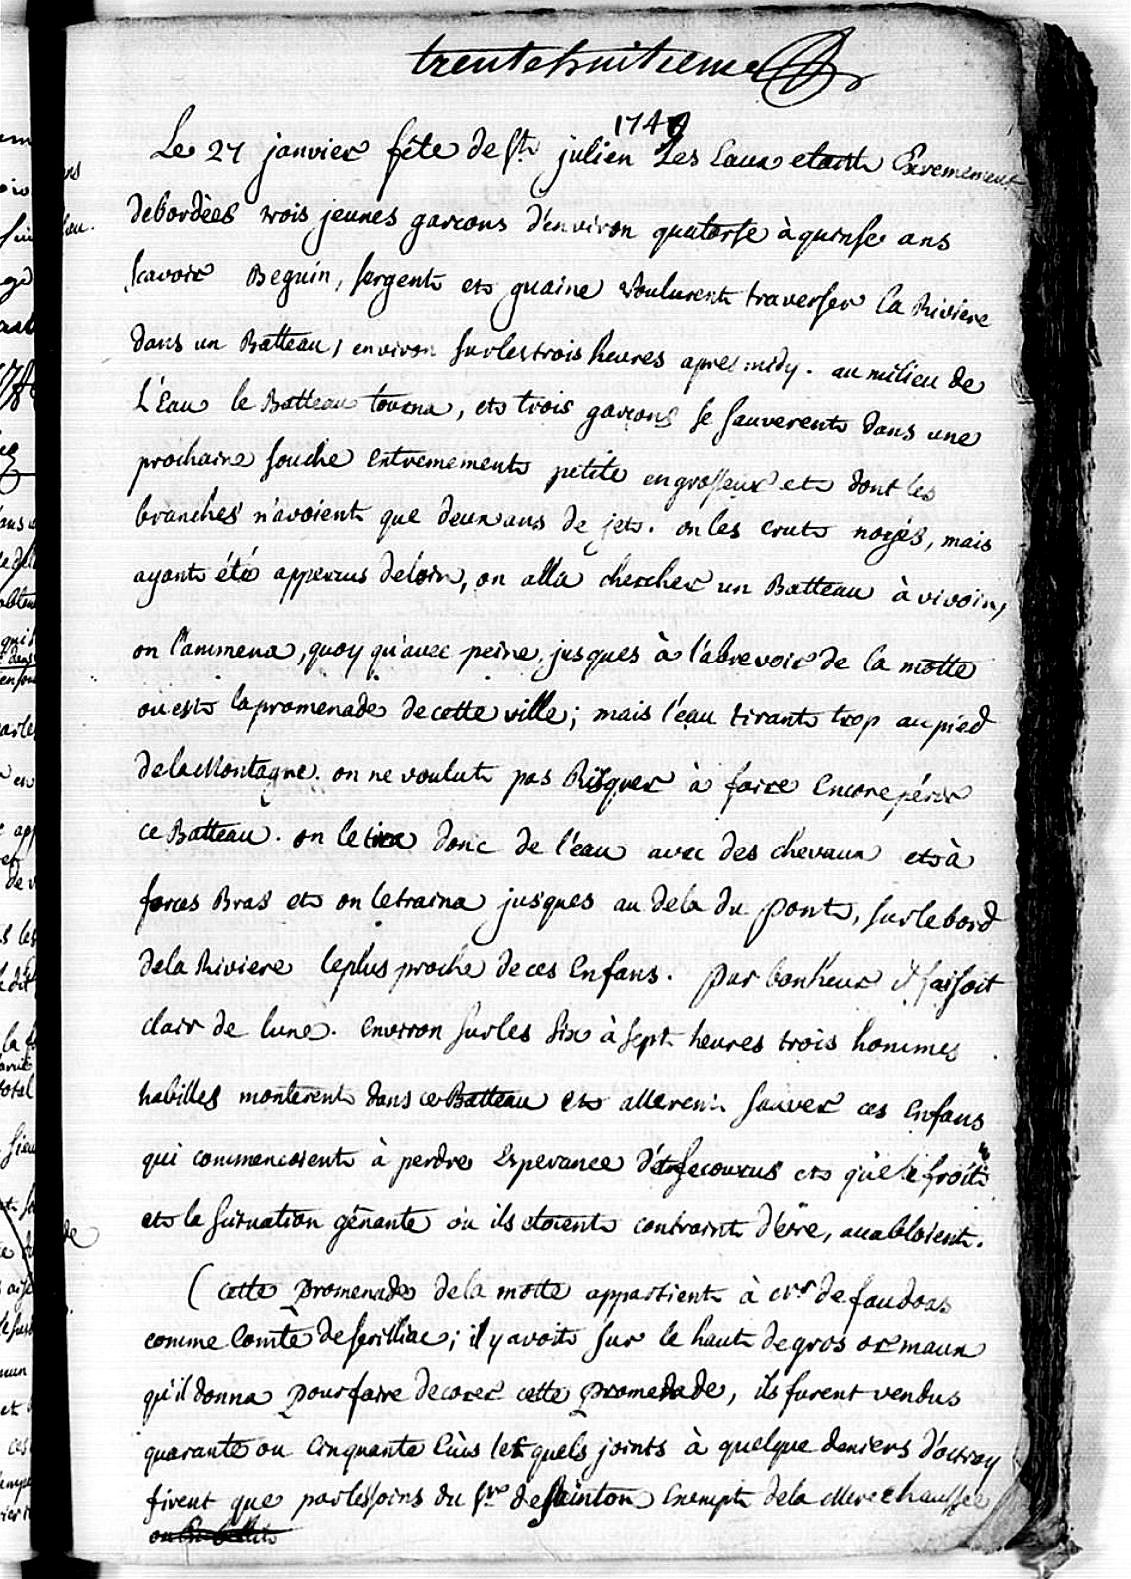 trente huitieme
1749
Le 27 janvier fête de St julien Les Eaux etant Extremement
debordées trois jeunes garcons d'environ quatorse à quinse ans
scavoir Beguin, sergent et guaine voulurent traverser la Riviere
dans un Batteau, environ sur les trois heures apres midy. au milieu de
L'Eau le Batteau tourna, et trois garçons se sauverent dans une
prochaine souche extremement petite en grosseur et dont les
branches n'avoient que deux ans de jet. on les crut noyés, mais
ayant été apperçus de loin, on alla chercher un Batteau à vivoin,
on l'ammena, quoy qu'avec peine, jusques à l'abrevoir de la motte
ou est la promenade de cette ville; mais l'eau tirant trop au pied
de la Montagne. on ne voulut pas Risquer à faire Encore périr
ce Batteau. on le tira donc de l'eau avec des chevaux et à
forces Bras et on le traina jusques au dela du pont, sur le bord
de la Riviere le plus proche de ces Enfans. par bonheur il faisoit
clair de lune. Environ sur les six à sept heures trois hommes
habilles monterent dans ce Batteau et allerent sauver ces Enfans
qui commencoient à perdre Esperance d'être secourus et que le froit
et la situation gênante où ils etoient contraint d'être, accabloient.
(cette promenade de la motte appartient à Mr de faudoas
comme Comte de serilliac; il y avoit sur le haut de gros ormaux
qu'il donna pour faire decorer cette promenade, ils furent vendus
quarante ou Cinquante Ecus lesquels joints à quelque deniers d'octroy
firent que par les soins du Sr de sainton Exempt de la Marechaussée